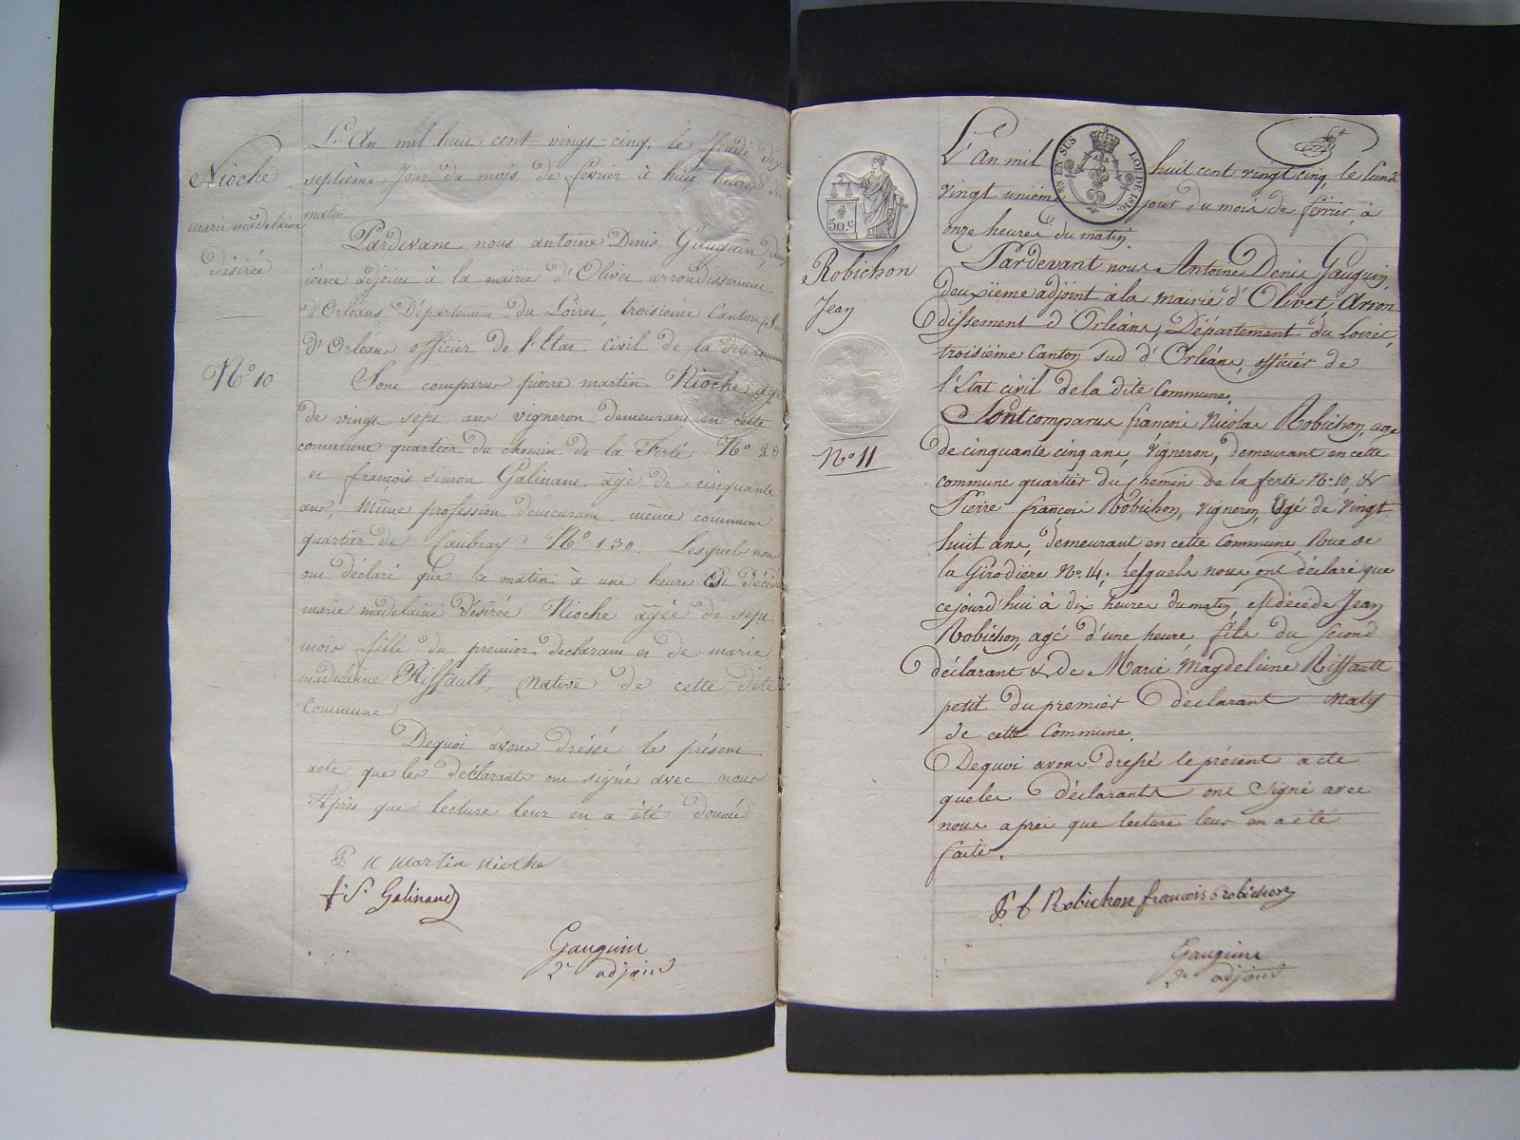 Nioche
marie madelaine
désirée
N° 10
L'An mil huit cent vingt-cinq, le Jeudi dix
septième Jour du mois de fevrier à huit heures du
matin
Pardevant nous antoine Denis Gauguin, deux
ième adjoint à la mairie d'Olivet arrondissement
d'Orléans Département du Loiret, troisieme Canton
D'Orléans officier de l'Etat civil de la dite
Sont comparus pierre martin Nioche agé
de vingt sept ans vigneron demeurant en cette
commune quartier du chemin de la Ferté N°
et françois simon Galinand agé de cinquante
ans, même profession demeurant même commune
quartier de Caubray N° 130. Lesquels nous
ont déclaré que ce matin à une heure Est décédé
marie madelaine Désirée Nioche agée de sept
mois fille du premier declarant et de marie
madelaine Riffault, Native de cette dite
Commune
Dequoi avons dréssé le présent
acte que les déclarants ont signé avec nous
Après que lecture leur en a été donnée
P M martin nioche
f. S. Galinand
Gauguin
2e adjoint
50 c
Robichon
Jean
N° 11
EN SUS LOI DE 1816
L'An mil huit cent vingt cinq, le Lundi
vingt unieme jour du mois de février, à
onze heures du matin.
Pardevant nous Antoine Denis Gauguin,
deuxïeme adjoint à la mairie d'Olivet, Arron
dissement d'Orléans, Département du Loiret,
troisiéme Canton sud d'Orléans, officier de
l'Etat civil de la dite Commune.
Sont comparus françois Nicolas Robichon, age
de cinquante cinq ans, Vigneron, demeurant en cette
commune quartier du chemin de la ferté N° 10, &
Pierre françois Robichon, vigneron, agé de vingt
huit ans, demeurant en cette Commune Rue de
la Girodière N° 14. Lesquels nous ont déclaré que
cejourd'hui à dix heures du matin, est décédé Jean
Robichon, agé d'une heure fils du second
déclarant & de Marie Magdeleine Riffault
petit du premier déclarant natif
de cette Commune.
Dequoi avons dressé le présent acte
que les déclarants ont signé avec
nous aprèi que lecture leur en a été
faite.
P f Robichon francois robichon
Gauguin
2e adjoint